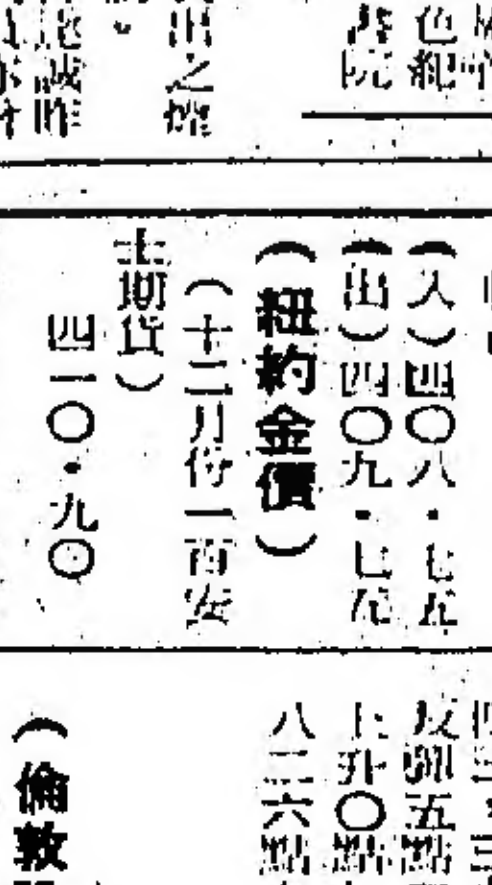 色紀
書院
出之燈
誠昨
(入)四〇八·七五
(出)四〇九·七五
(紐約金價)
(十二月份一百安
士期貨)
四一〇·九〇
反彈五點
上升〇點
八二六點
(倫敦